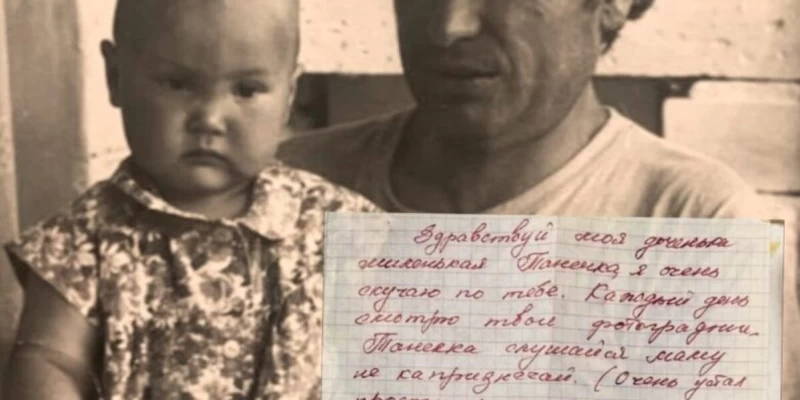 Здравствуй моя доченька
миленькая Танечка, я очень
скучаю по тебе. Каждый день
смотрю твои фотографии.
Танечка слушайся маму
не капризнечай. (Очень устал